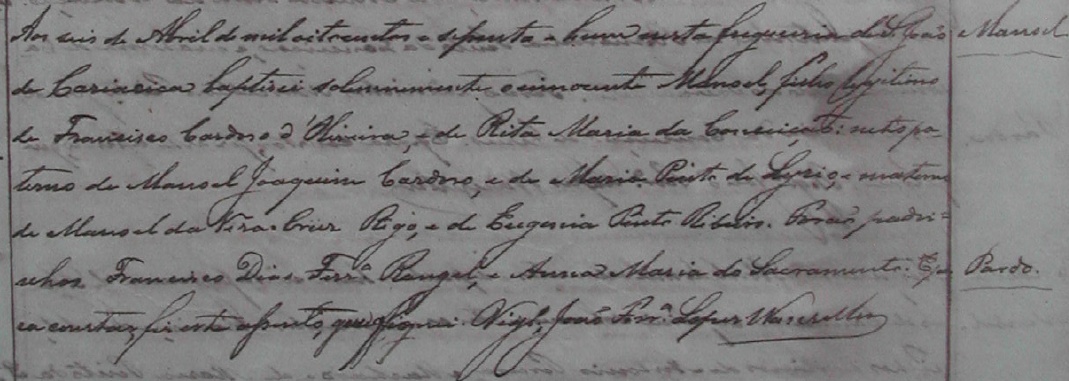 Aos seis de Abril de mil oitocentos e setenta e hum nesta freguezia de S. João Manoel
de Cariacica baptisei solemnemente o innocente Manoel, filho legitimo
de Francisco Cardoso d'Oliveira, e de Rita Maria da Conceição: neto pa-
terno de Manoel Joaquim Cardoso, e de Maria Pinto de Lyrio, e materno
de Manoel da Vera-Cruz Rigo, e de Eugenia Pinto Ribeiro. Forão padri=
nhos Francisco Dias Ferrª Rangel, e Anna Maria do Sacramento. E pa Pardo.
ra constar, fiz este assento, que assignei. Vigº João Ferrª Lopes